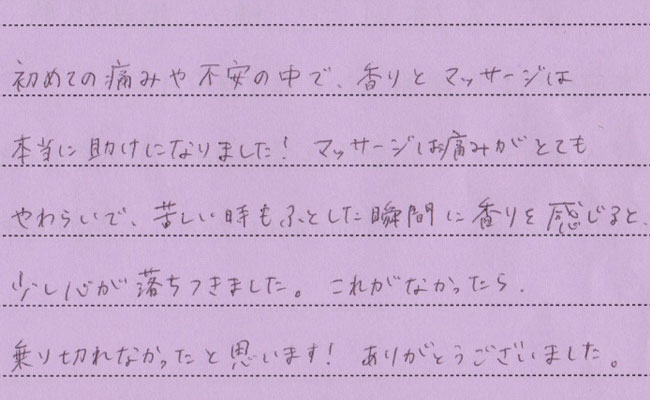 初めての痛みや不安の中で、香りとマッサージは
本当に助けになりました! マッサージは痛みがとても
やわらいで、苦しい時もふとした瞬間に香りを感じると、
少し心が落ちつきました。 これがなかったら、
乗り切れなかったと思います! ありがとうございました。